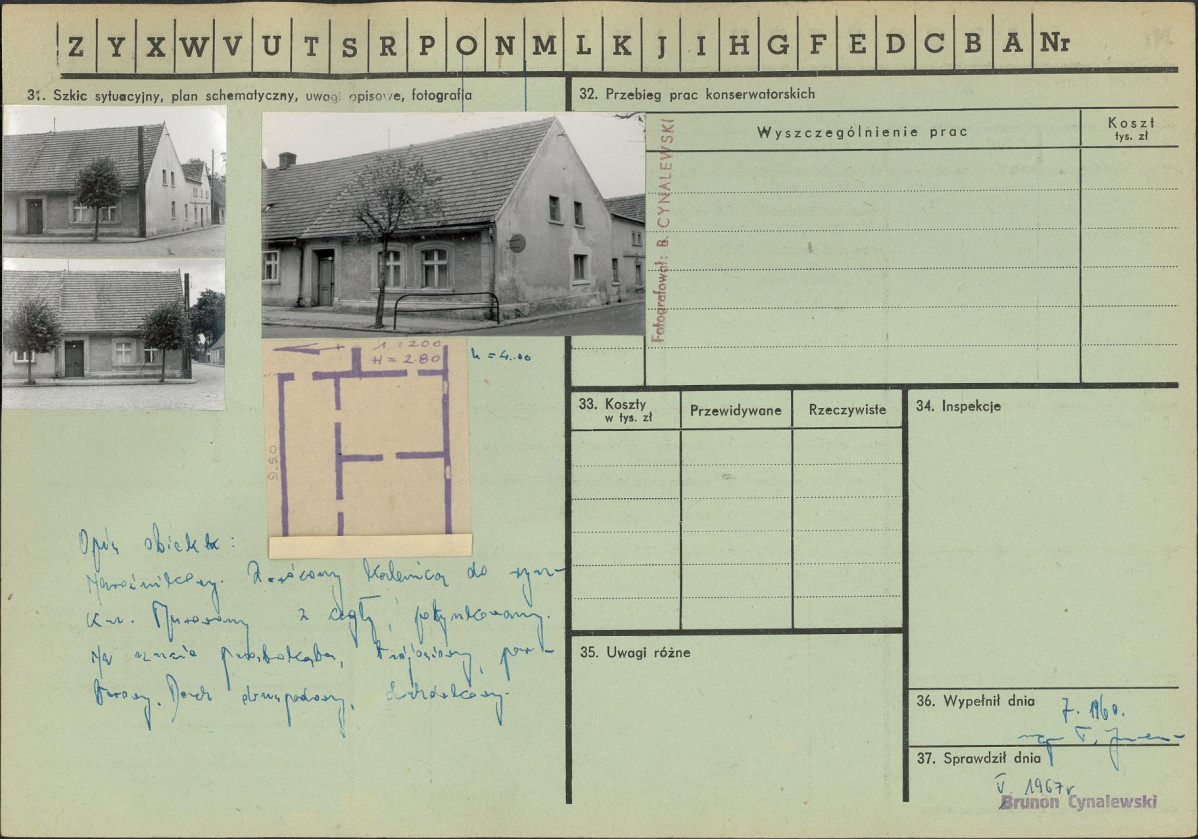 Z Y X W V U T S R P O N M L K J I H G F E D C B A Nr
31. Szkic sytuacyjny, plan schematyczny, uwagi opisowe, fotografia
Fotografował: B. CYNALEWSKI
1:200
H = 2.80
h = 4.00
9.50
Opis obiektu:
Narożnikowy. Zwrócony kalenicą do ryn-
ku. Murowany z cegły, potynkowany.
Na rzucie prostokąta, trójosiowy, par-
terowy. Dach dwuspadowy, dachówkowy.
32. Przebieg prac konserwatorskich
Wyszczególnienie prac
Koszt
tys. zł
33. Koszty
w tys. zł
Przewidywane
Rzeczywiste
34. Inspekcje
35. Uwagi różne
36. Wypełnił dnia
7. 1960.
mgr T.
37. Sprawdził dnia
V. 1967 r
Brunon Cynalewski